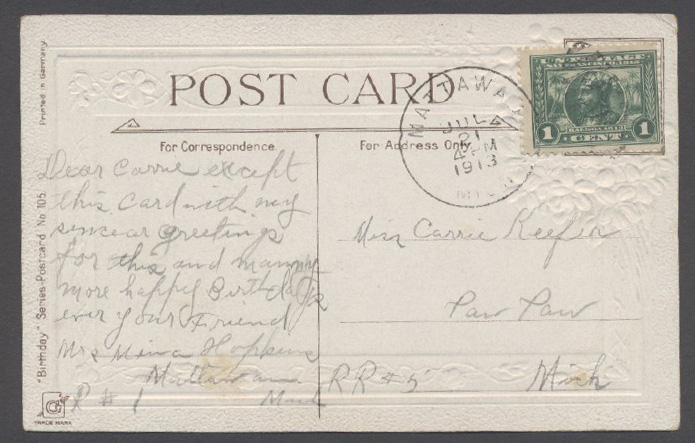 POST CARD
MATTAWAN
JUL
21
4 PM
1913
MICH
U.S. POSTAGE
1 CENT 1
BALBOA 1513
For Correspondence.
For Address Only.
Dear Carrie except
this Card with my
sincear greetings
for this and manny
more happy Birthdays
ever your Friend
Mrs Mina Hopkins
Mattawan
R # 1 Mich
Miss Carrie Keefer
Paw Paw
RR # 5 Mich
Printed in Germany
"Birthday" Series-Postcard No. 105.
TRADE MARK